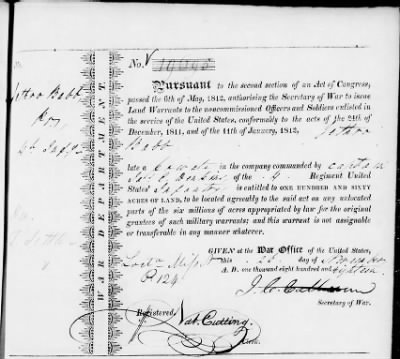 No.
Pursuant to the second section of an Act of Congress,
passed the 6th of May, 1812, authorising the Secretary of War to issue
Land Warrants to the noncommissioned Officers and Soldiers enlisted in
the service of the United States, conformably to the acts of the 24th of
December, 1811, and of the 11th of January, 1812, Jethro
Babb
late a in the company commanded by
of the 9 Regiment United
States' Infantry is entitled to ONE HUNDRED AND SIXTY
ACRES OF LAND, to be located agreeably to the said act on any unlocated
parts of the six millions of acres appropriated by law for the original
grantees of such military warrants; and this warrant is not assignable
or transferable in any manner whatever.
GIVEN at the War Office of the United States,
this day of
A. D. one thousand eight hundred and eighteen
J. C. Calhoun
Secretary of War.
Registered,
Nat. Cutting,
Clerk.
WAR DEPARTMENT
Jethro Babb